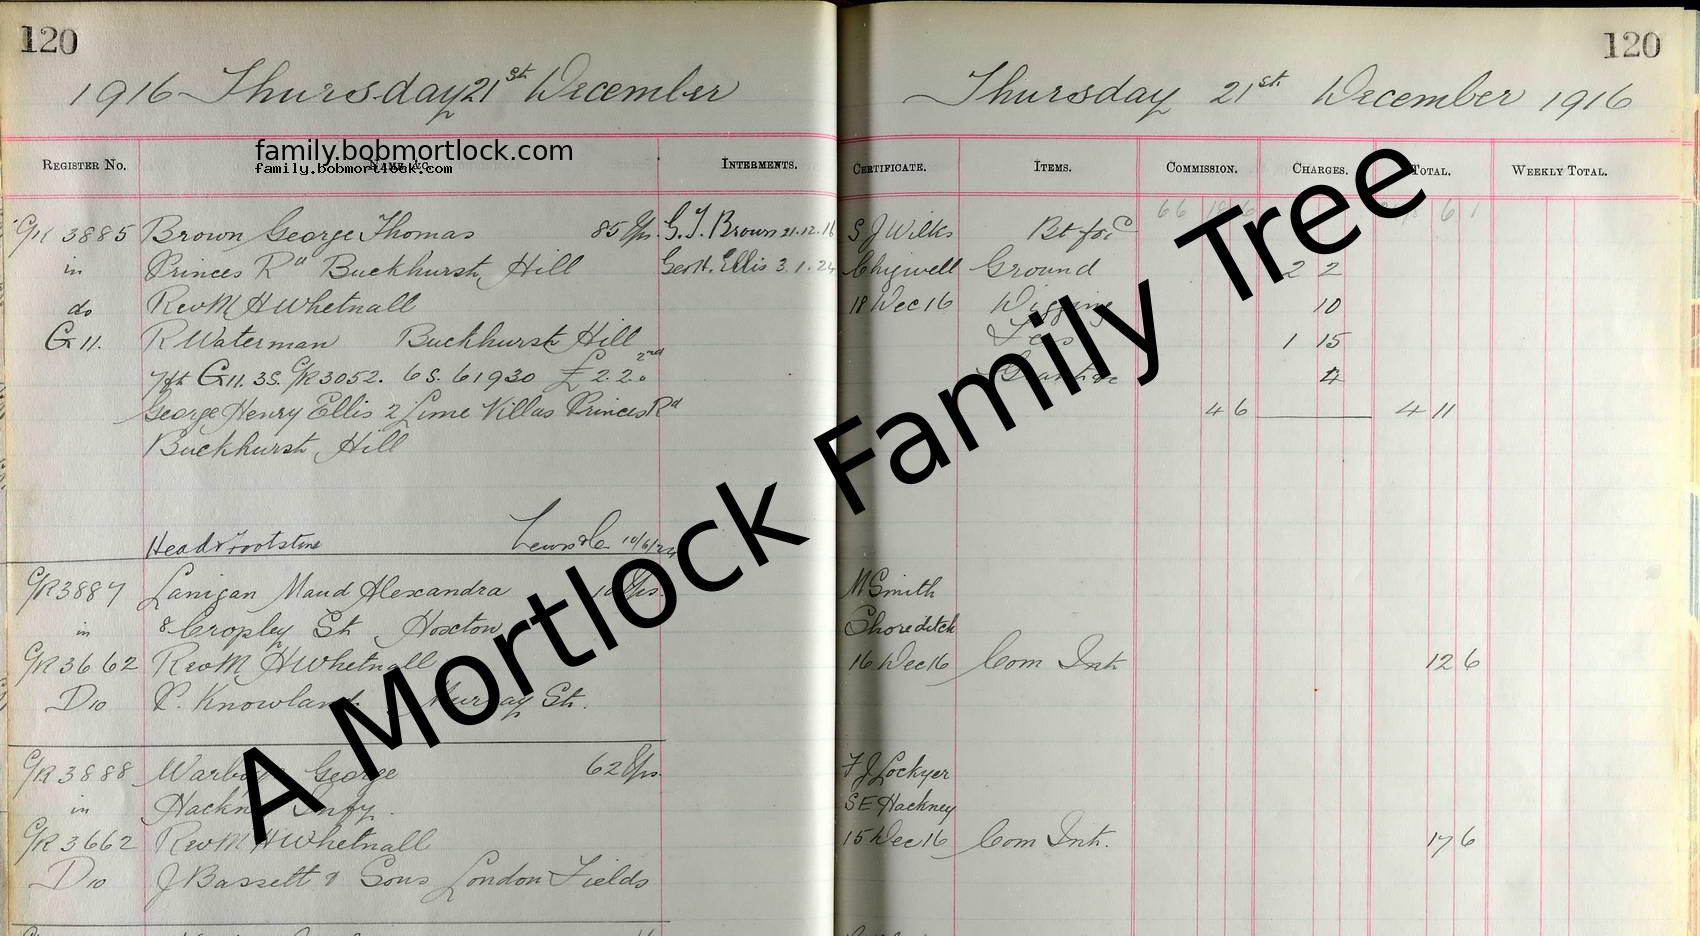 120
120
1916 Thursday 21st December
Thursday 21st December 1916
family.bobmortlock.com
family.bobmortlock.com
Register No. Name &c. Interments. Certificate. Items. Commission. Charges. Total. Weekly Total.
GR 3885 Brown George Thomas 85 Yrs. G. T. Brown 21.12.16 S J Wilks Bt ford
in Princes Rd Buckhurst Hill Geo H. Ellis 3.1.24 Chigwell Ground 2 2
do Rev M H Whetnall 18 Dec 16 Digging 10
G 11. R Waterman Buckhurst Hill Fees 1 15
7ft G11. 3S. GR3052. 6S. 61930 £2.2.0 2nd 4
George Henry Ellis 2 Lime Villas Princes Rd 4 6 4 11
Buckhurst Hill
Head & Footstone Lewis & Co 10/6/24
GR3887 Lanigan Maud Alexandra Yrs. M Smith
in 8 Cropley St Hoxton Shoreditch
GR3662 Rev M H Whetnall 16 Dec 16 Com Int 12 6
D10 Knowland Murray St.
GR3888 George 62 Yrs. F J Lockyer
in Hackney Infy. SE Hackney
GR3662 Rev M H Whetnall 15 Dec 16 Com Int. 17 6
D10 J Bassett & Sons London Fields
A Mortlock Family Tree